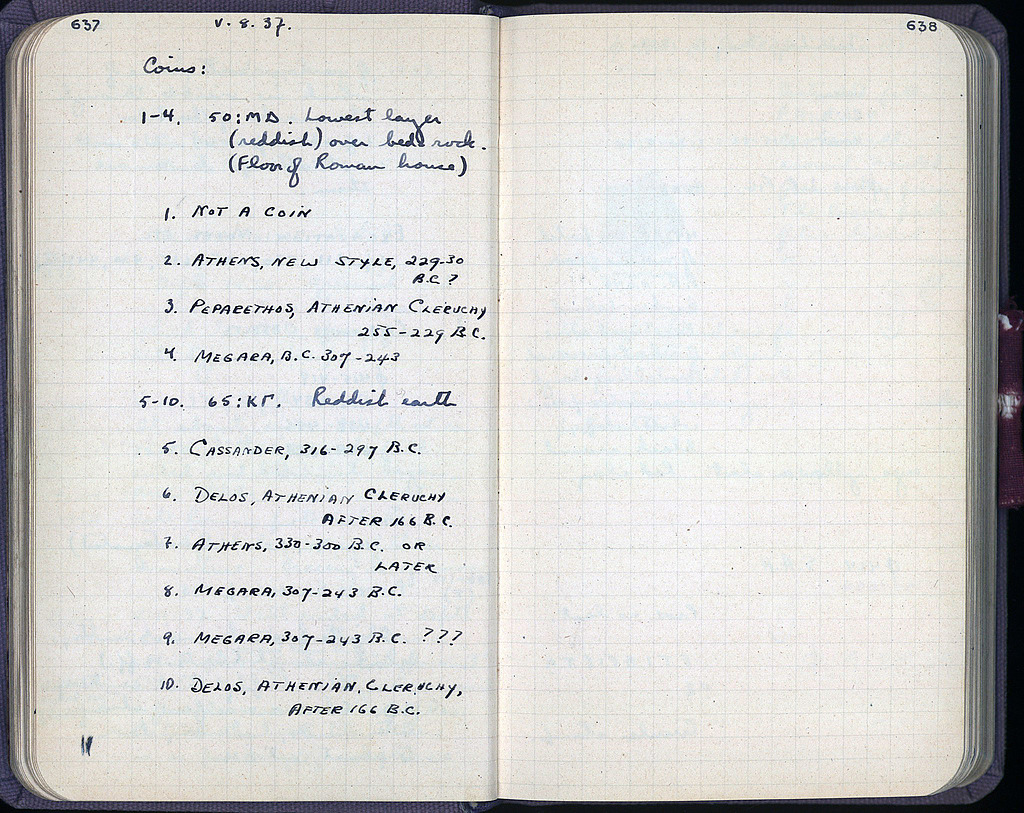 637
V. 8. 37.
638
Coins:
1-4. 50:MΔ. Lowest layer
(reddish) over bed rock.
(Floor of Roman house)
1. NOT A COIN
2. ATHENS, NEW STYLE, 229-30
B.C.?
3. PEPARETHOS, ATHENIAN CLERUCHY
255-229 B.C.
4. MEGARA, B.C. 307-243
5-10. 65:ΚΓ. Reddish earth
5. CASSANDER, 316-297 B.C.
6. DELOS, ATHENIAN CLERUCHY
AFTER 166 B.C.
7. ATHENS, 330-300 B.C. OR
LATER
8. MEGARA, 307-243 B.C.
9. MEGARA, 307-243 B.C. ???
10. DELOS, ATHENIAN CLERUCHY,
AFTER 166 B.C.